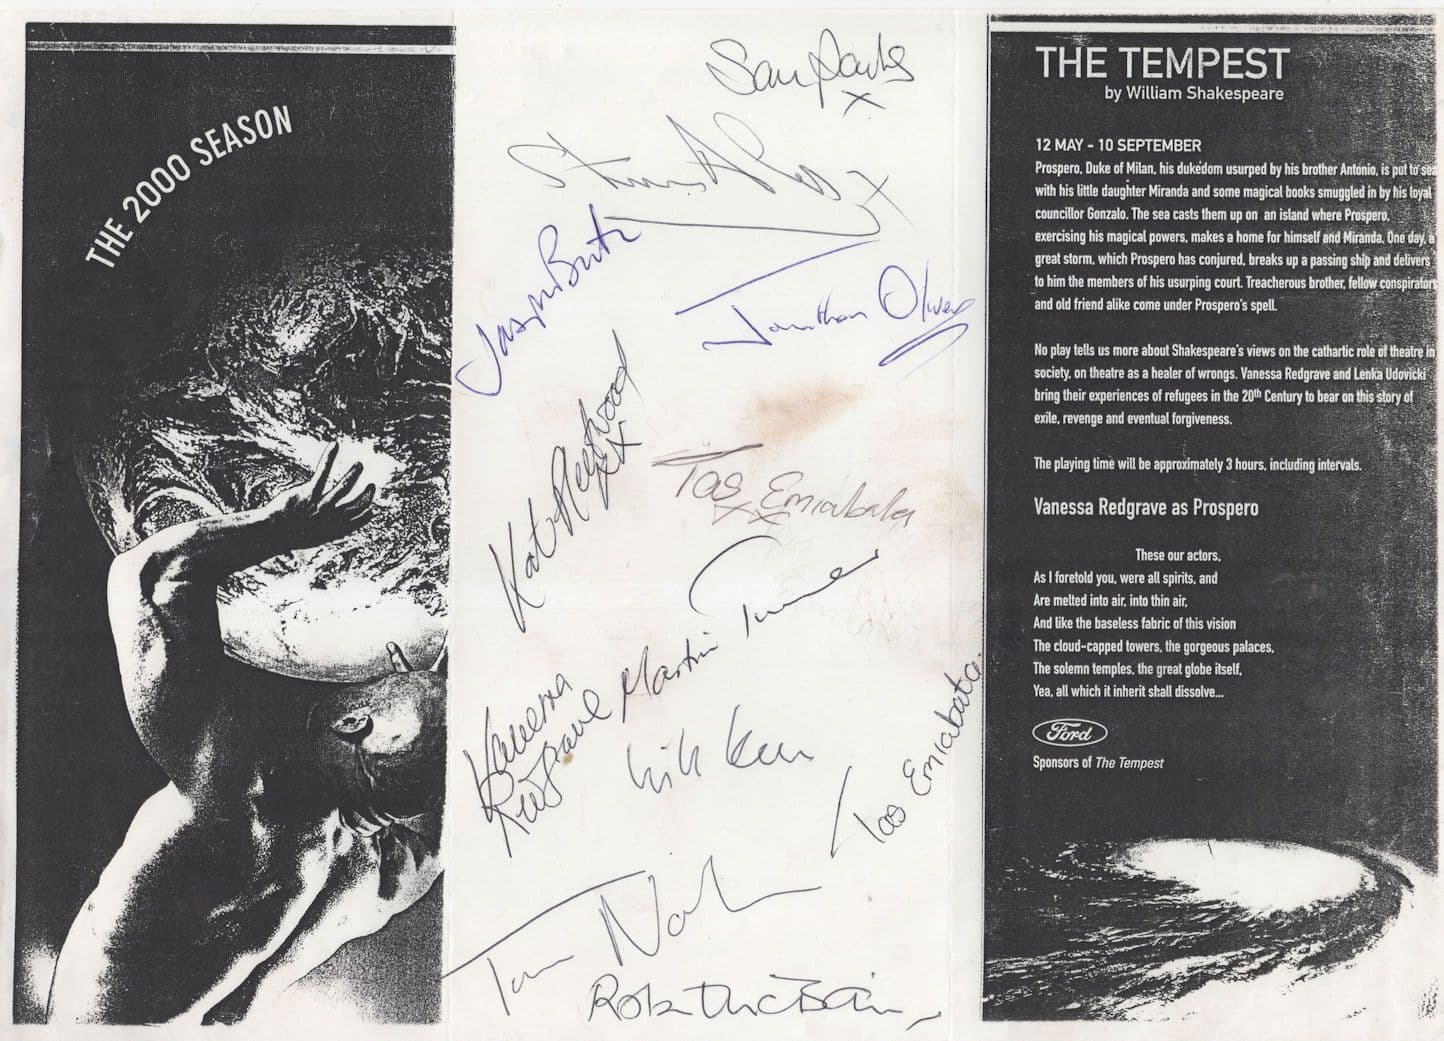 THE 2000 SEASON
Sam Parks
x
x
Jason Baitz
Jonathan Oliver
Kate Fleetwood
xx
Tas Emiabata
xx
Martin Turner
Vanessa
Redgrave
Kirk
Tas Emiabata
Tam
Robert McBain
THE TEMPEST
by William Shakespeare
12 MAY - 10 SEPTEMBER
Prospero, Duke of Milan, his dukedom usurped by his brother Antonio, is put to sea
with his little daughter Miranda and some magical books smuggled in by his loyal
councillor Gonzalo. The sea casts them up on an island where Prospero,
exercising his magical powers, makes a home for himself and Miranda. One day, a
great storm, which Prospero has conjured, breaks up a passing ship and delivers
to him the members of his usurping court. Treacherous brother, fellow conspirators
and old friend alike come under Prospero's spell.
No play tells us more about Shakespeare's views on the cathartic role of theatre in
society, on theatre as a healer of wrongs. Vanessa Redgrave and Lenka Udovicki
bring their experiences of refugees in the 20th Century to bear on this story of
exile, revenge and eventual forgiveness.
The playing time will be approximately 3 hours, including intervals.
Vanessa Redgrave as Prospero
These our actors,
As I foretold you, were all spirits, and
Are melted into air, into thin air,
And like the baseless fabric of this vision
The cloud-capped towers, the gorgeous palaces,
The solemn temples, the great globe itself,
Yea, all which it inherit shall dissolve...
Ford
Sponsors of The Tempest